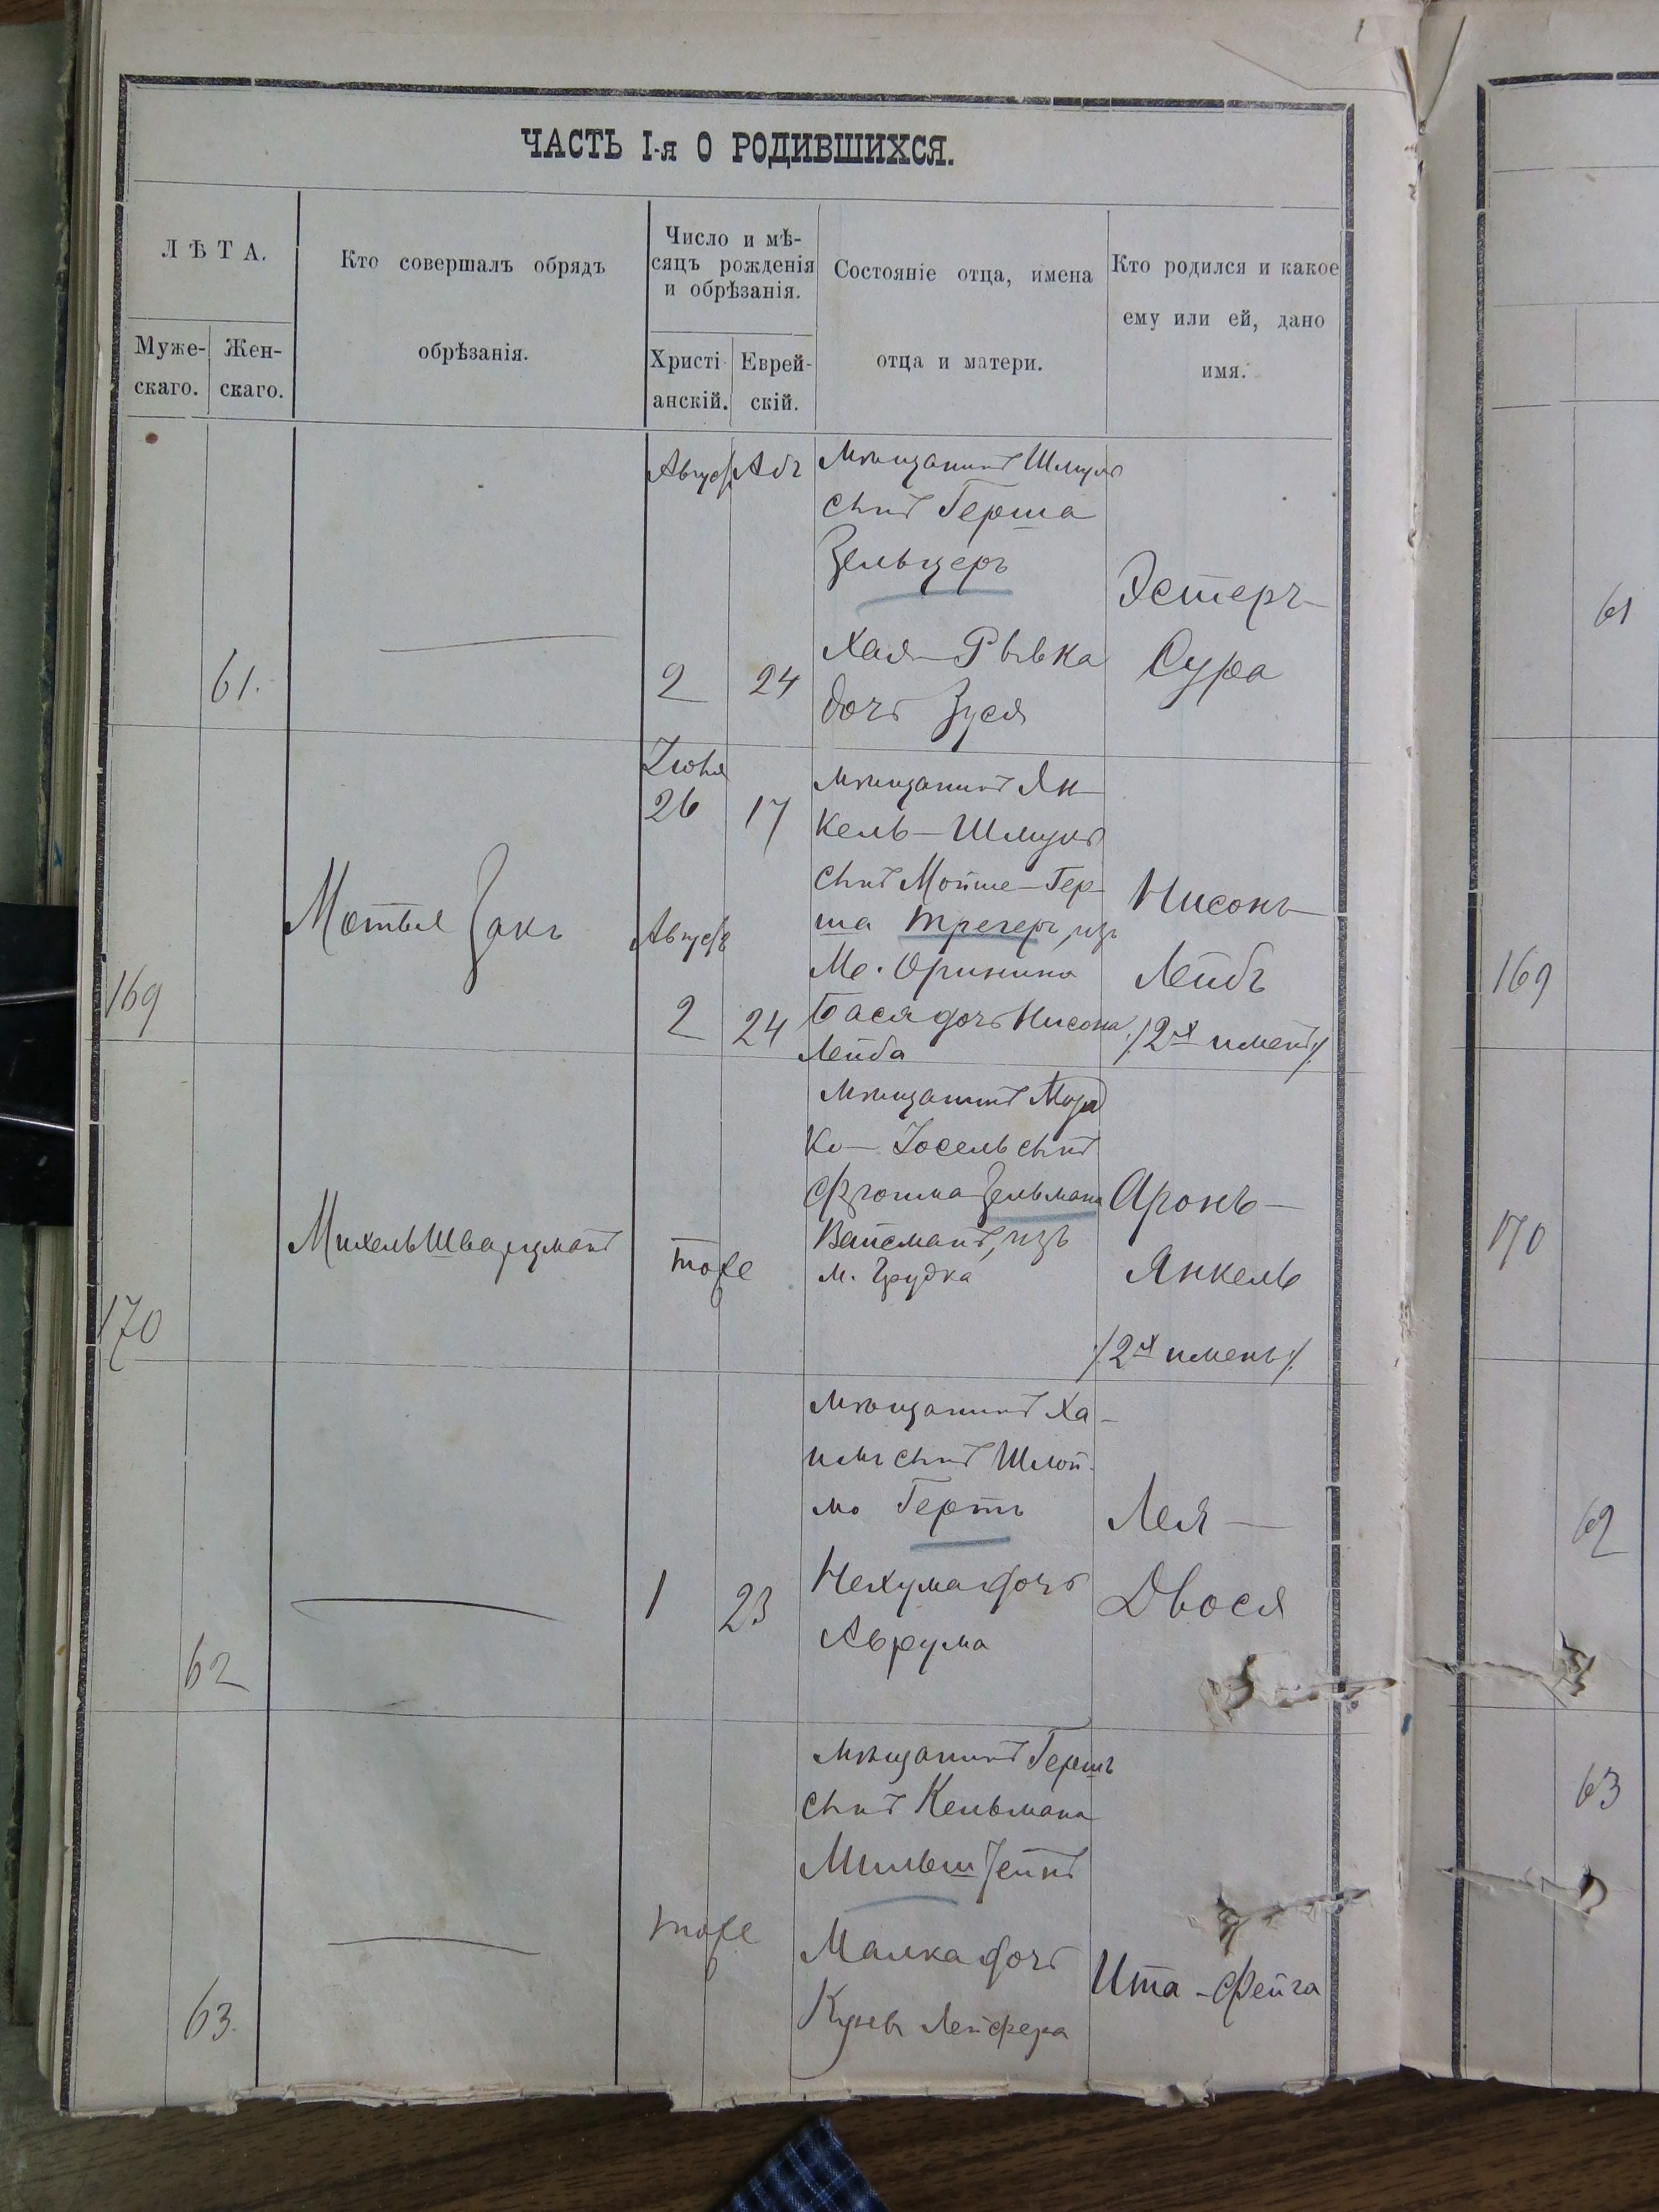 ЧАСТЬ I-я О РОДИВШИХСЯ.
ЛѢТА.
Муже-
скаго.
Жен-
скаго.
Кто совершалъ обрядъ
обрѣзанія.
Число и мѣ-
сяцъ рожденія
и обрѣзанія.
Христі-
анскій.
Еврей-
скій.
Состояніе отца, имена
отца и матери.
Кто родился и какое
ему или ей, дано
имя.
61.
Август
2
Абъ
24
Мѣщанинъ Шмуль
сынъ Герша
Зельцеръ
Хая-Рывка
дочь Зуся
Эстеръ-
Сура
61
169
Мотья Закъ
Іюля
26
17
Август
2
24
Мѣщанинъ Ян-
кель-Шмуль
сынъ Мойше-Гер-
ша Трегеръ, изъ
М. Оринина
Бася дочь Нисона
Лейба
Нисонъ-
Лейбъ
/2хъ именъ/
169
170
Михель Шварцманъ
тоже
Мѣщанинъ
ко-Іосель сынъ
Фроима-Зельмана
Вайсманъ, изъ
м. Грудка
Аронъ-
Янкель
/2хъ именъ/
170
62
1
23
Мѣщанинъ Ха-
имъ сынъ Шлой-
мо Гертъ
Нехума дочь
Аврума
Лея-
Двося
62
63.
тоже
Мѣщанинъ Гершъ
сынъ Кельмана
Мильштейнъ
Малка дочь
Лейфера
Ита-Фейга
63